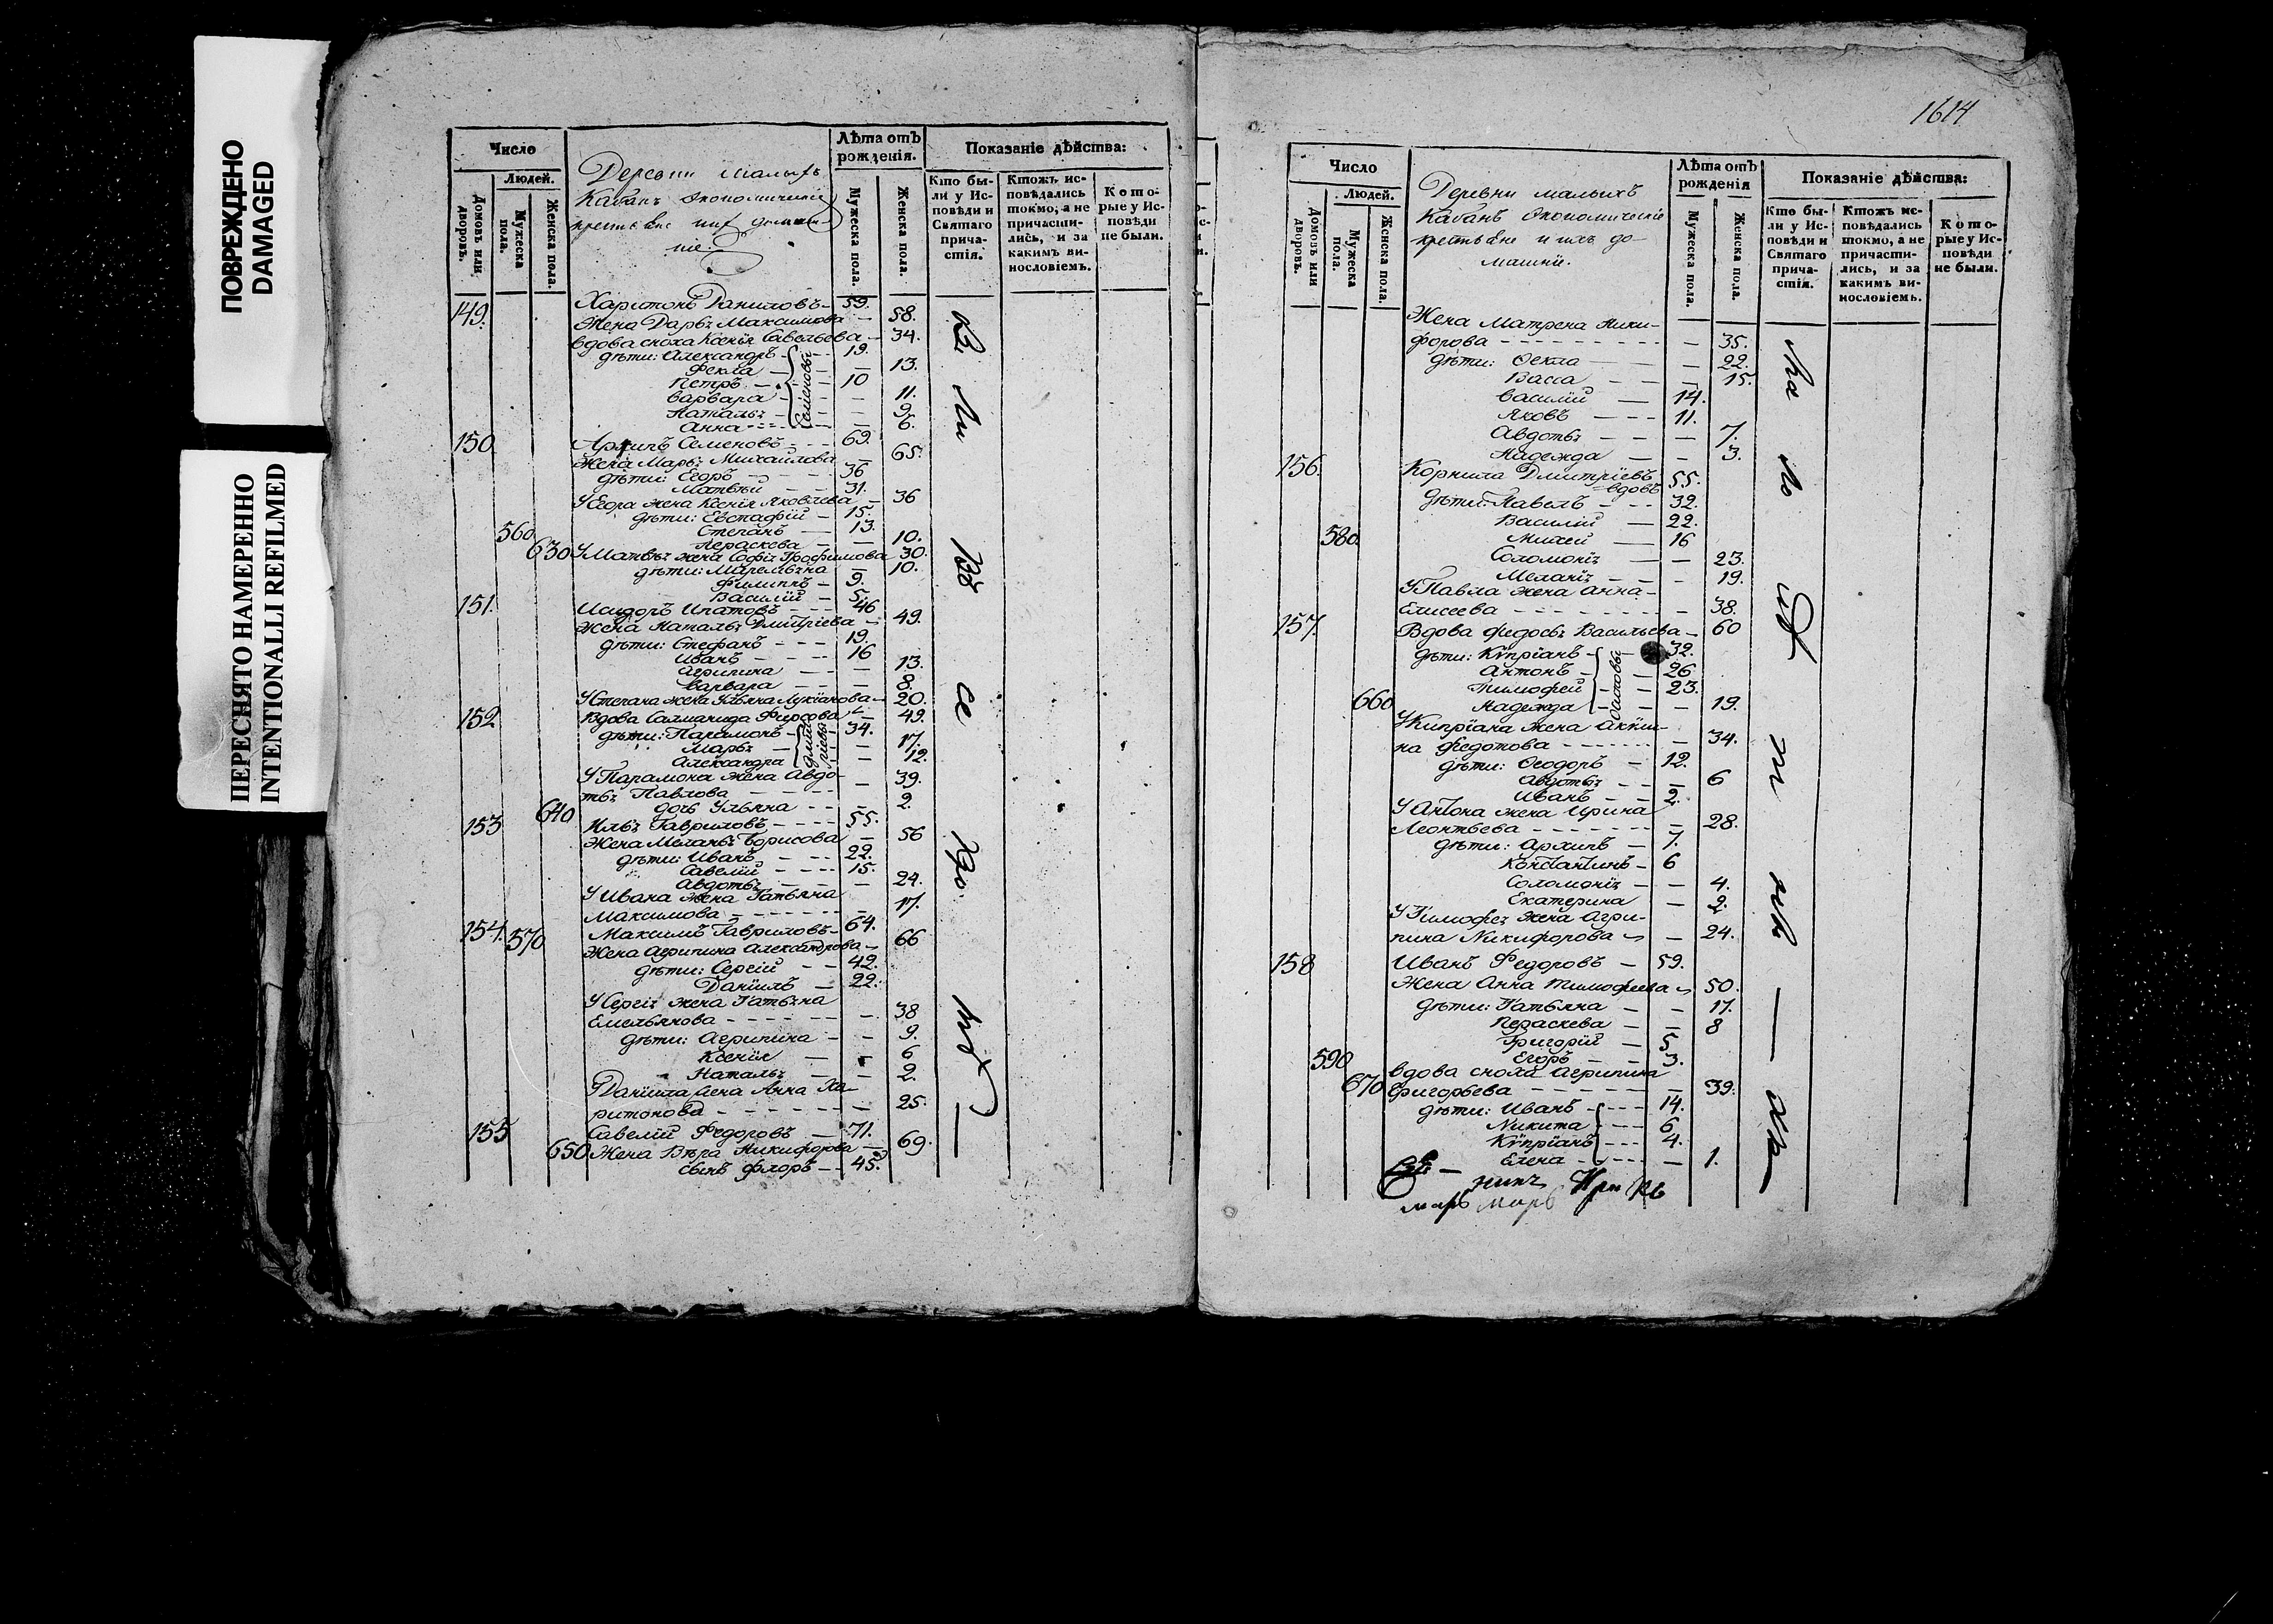 ПОВРЕЖДЕНО
DAMAGED
ПЕРЕСНЯТО НАМЕРЕННО
INTENTIONALLI REFILMED
Число
Людей.
Домовъ или дворовъ.
Мужеска пола.
Женска пола.
Деревни малыхъ
Кабанъ Экономическіе
крестьяне
Лѣта отъ рожденія.
Мужеска пола.
Женска пола.
Показаніе дѣйства:
Кто бы-
ли у Ис-
повѣди и
Святаго
прича-
стія.
Ктожъ ис-
повѣдались
токмо, а не
причасти-
лись, и за
какимъ ви-
нословіемъ.
Кото-
рые у Ис-
повѣди
не были.
149. Харитонъ Даниловъ - 59.
Жена Дарья Максимова - 58.
вдова сноха Ксенія Савельева - 34.
дѣти: Александръ - 19.
Фекла - 13.
Петръ - 10
Варвара - 11.
Наталья - 9.
Анна - 6.
Семеновы
150. Архипъ Семеновъ - 69.
Жена Марья Михайлова - 65.
дѣти: Егоръ - 36
Матвѣй - 31.
У Егора жена Ксенія Яковлева - 36
дѣти: Евстафій - 15.
560 Степанъ - 13.
Параскева - 10.
630 У Матвѣя жена Софія Трофимова 30.
дѣти: - 10.
Филиппъ - 9.
Василій - 5.
151. Исидоръ Ипатовъ - 46
Жена Наталья Дмитріева - 49.
дѣти: Стефанъ - 19.
Иванъ - 16
Агрипина - 13.
Варвара - 8.
У Степана жена Ульяна Лукіанова - 20.
152 Вдова Саломанида Фирсова - 49.
дѣти: Парамонъ - 34.
Марья - 17.
Александра - 12.
У Парамона жена Авдо-
тья Павлова - 39.
640 дочь Ульяна - 2.
153 Илья Гавриловъ - 55.
Жена Меланья Борисова - 56
дѣти: Иванъ - 22.
Савелій - 15.
Авдотья - 24.
У Ивана жена Татьяна
Максимова - 17.
154. 570 Максимъ Гавриловъ - 64.
Жена Агрипина Александрова - 66
дѣти: Сергій - 42.
Даніилъ - 22.
У Сергія жена Татьяна
Емельянова - 38
дѣти: Агрипина - 9.
Ксенія - 6
Наталья - 2.
У Даніила жена Анна Ха-
ритонова - 25.
155 Савелій Федоровъ - 71.
650 Жена Вѣра Никифорова - 69.
сынъ Флоръ - 45.
1614
Число
Людей.
Домовъ или дворовъ.
Мужеска пола.
Женска пола.
Деревни малыхъ
Кабанъ Экономическіе
крестьяне и ихъ до-
машніи.
Лѣта отъ рожденія
Мужеска пола.
Женска пола.
Показаніе дѣйства:
Кто бы-
ли у Ис-
повѣди и
Святаго
прича-
стія.
Ктожъ ис-
повѣдались
токмо, а не
причасти-
лись, и за
какимъ ви-
нословіемъ.
Кото-
рые у Ис-
повѣди
не были.
Жена Матрена Ники-
форова - 35.
дѣти: Ѳекла - 22.
Васса - 15.
Василій - 14.
Яковъ - 11.
Авдотья - 7.
Надежда - 3.
156. Корнила Дмитріевъ
вдовъ 55.
дѣти: Павелъ - 32.
Василій - 22.
580 Михей - 16
Соломонія - 23.
Меланія - 19.
У Павла жена Анна
Елисеева - 38.
157. Вдова Федосья Васильева - 60
дѣти: Кѵпріанъ - 32.
Антонъ - 26
Тимофей - 23.
660 Надежда - 19.
У Кипріана жена Акили-
на Федотова - 34.
дѣти: Ѳеодоръ - 12.
Авдотья - 6
Иванъ - 2.
У Антона жена Ирина
Леонтьева - 28.
дѣти: Архипъ - 7.
Константинъ - 6
Соломонія - 4.
Екатерина - 2.
У Тимофея жена Агри-
пина Никифорова - 24.
158 Иванъ Федоровъ - 59.
Жена Анна Тимофеева - 50.
дѣти: Татьяна - 17.
Параскева - 8
Григорій - 5
590 Егоръ - 3.
вдова сноха Агрипина
670 Григорьева - 39.
дѣти: Иванъ - 14.
Никита - 6
Кѵпріанъ - 4.
Елена - 1.